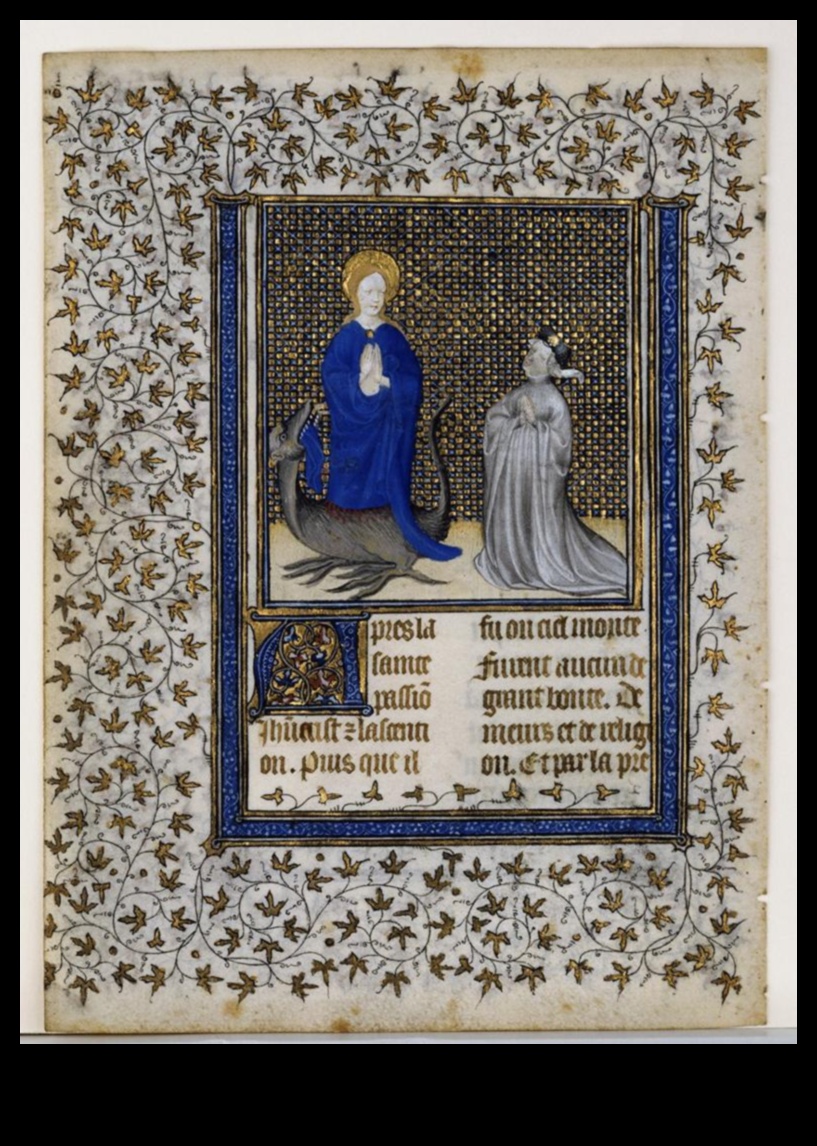 Apres la
sainte
passiõ
Jhũcrist ⁊ lascenti
on. Puis que il
fu ou ciel monte
furent aucun de
grant bonte. De
meurs et de religi
on. Et par la pre